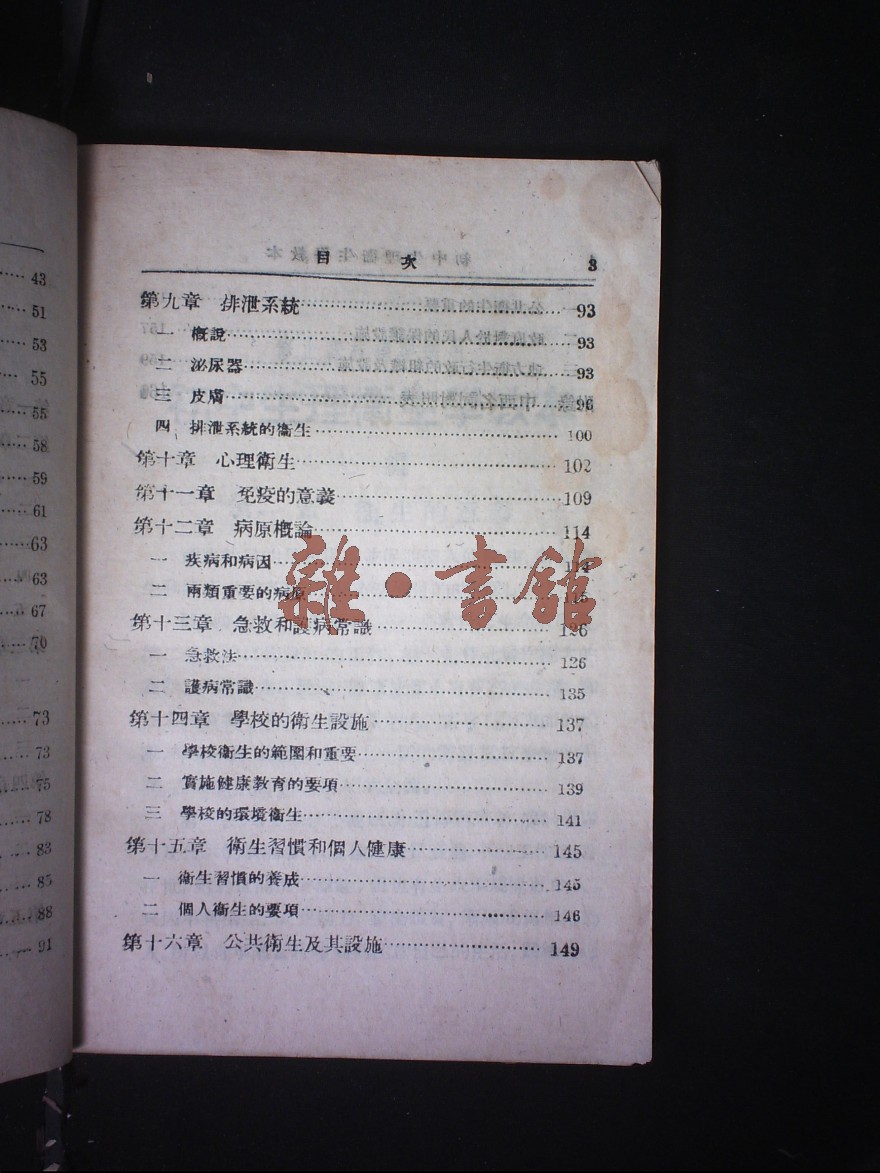 43
51
53
55
55
58
59
61
63
63
67
70
73
73
75
78
83
85
88
91
目次 3
第九章 排泄系統 93
一 概說 93
二 泌尿器 93
三 皮膚 96
四 排泄系統的衞生 100
第十章 心理衞生 102
第十一章 免疫的意義 109
第十二章 病原概論 114
一 疾病和病因 114
二 兩類重要的病原 115
第十三章 急救和護病常識 126
一 急救法 126
二 護病常識 135
第十四章 學校的衞生設施 137
一 學校衞生的範圍和重要 137
二 實施健康教育的要項 139
三 學校的環境衞生 141
第十五章 衞生習慣和個人健康 145
一 衞生習慣的養成 145
二 個人衞生的要項 146
第十六章 公共衞生及其設施 149
雜·書館